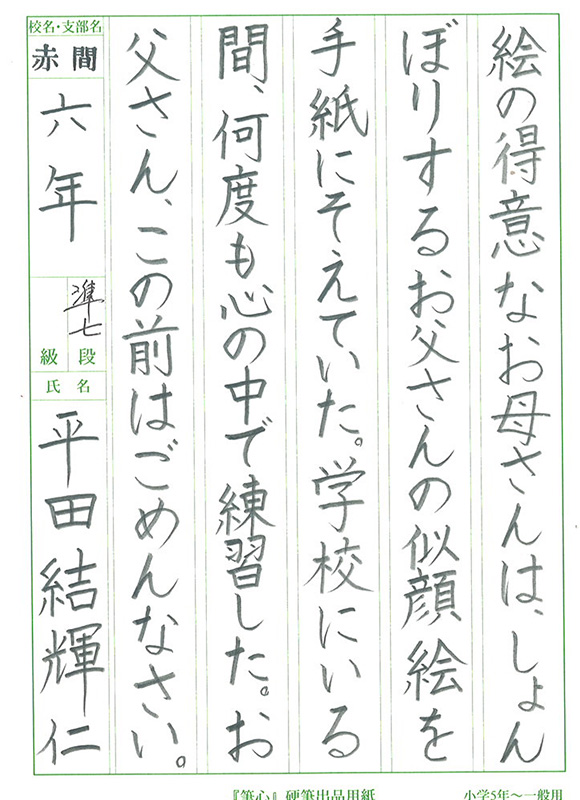 絵の得意なお母さんは、しょん
ぼりするお父さんの似顔絵を
手紙にそえていた。学校にいる
間、何度も心の中で練習した。お
父さん、この前はごめんなさい。
校名・支部名
赤間
六年
準七
級 段
氏名
平田結輝仁
『筆心』硬筆出品用紙
小学5年～一般用